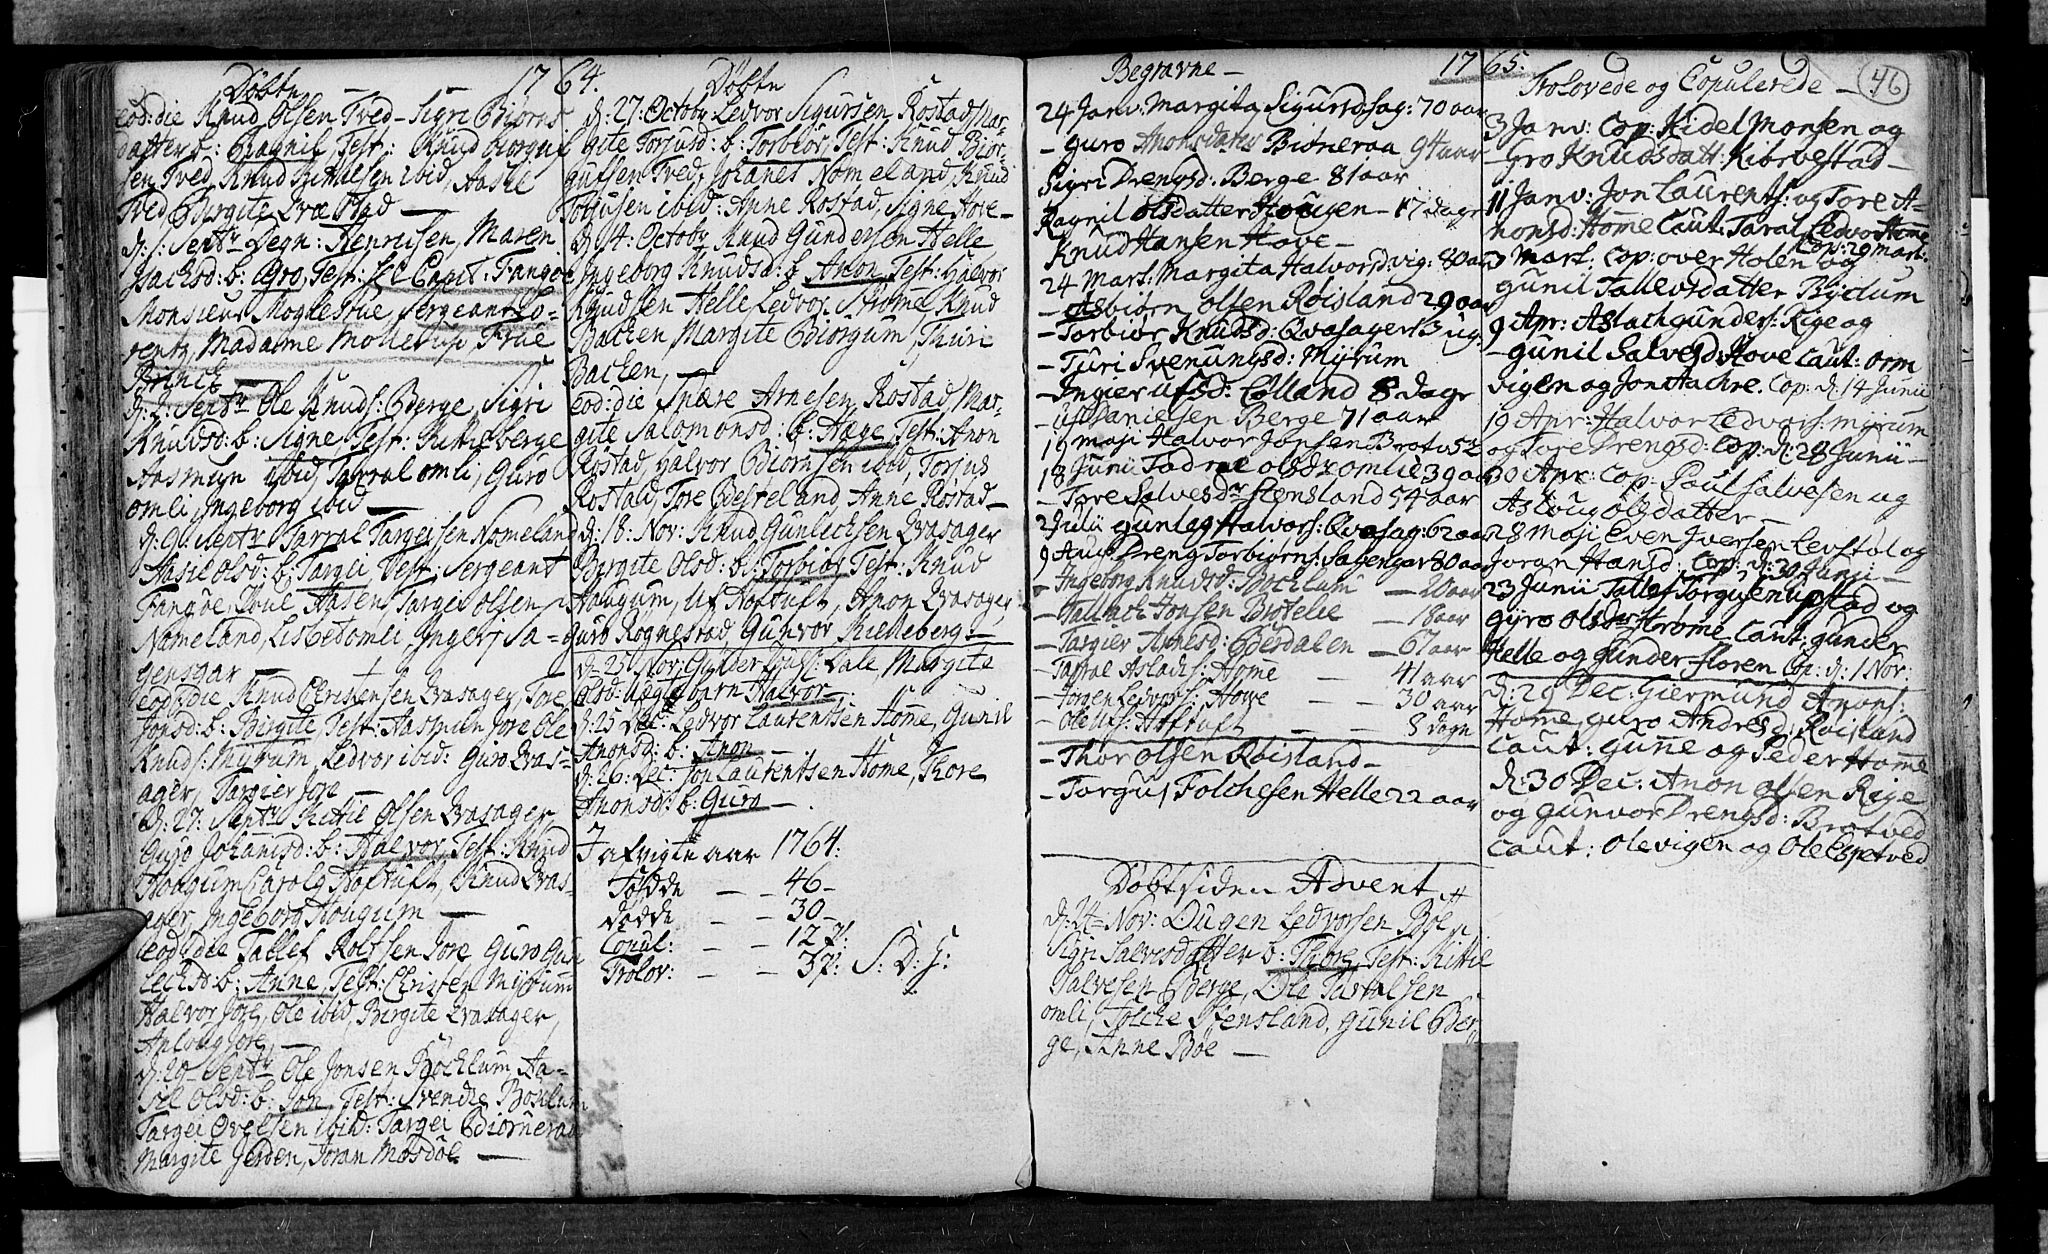 Døbte 1764. Døbte
eod: die Knud Olsen Tved – Sigri Biörns
datter b: Ragnil, Test: Knud Biorguf
sen Tved, Knud ibid, Aasil
Tved, Birgite
d: 1: Septr Degn: Henrichsen, Maren
Isachsd: b: Test: Fangöe
Monsieur Sergeant Lo-
rentz, Madame Frue
Brinck –
d: 2: Septr Ole Knuds: Berge, Sigri
Knudsd: b: Signe Test: Kittil berge
Aasmun ibid, Tarral omli, Guro
omli, Ingeborg ibid –
d: 9: Septr Tarral Targeisen Nomeland
Aasil Olsd: b: Targei Test: Sergeant
Fangöe, Aasen, Targei Olsen
Nomeland, Lisbet omli, Ingerj Sa-
gensgar –
eod: die Knud Christensen Qvasager, Tore
Jonsd: b: Birgite Test: Aasmun Jore Ole
Knuds: Myrum, Ledvor ibid: Guro Qvas-
ager, Targier Jore –
d: 27: Septr Kittil Olsen Qvasager
Guro Johanisd: b: Halvor, Test: Knud
Hougum Hoftuft, Knud Qvas-
ager, Ingeborg Hougum –
eod: die Tallef Rolfsen Jore Guro Gun
lechsd: b: Anne, Test: Christen Myrum
Halvor Jore, Ole ibid, Birgite Qvasager,
Asloug Jore, –
d: 20 Septr Ole Jonsen Böchlum, Aa-
sil Olsd: b: Jon Test: Svenche Böchlum
Targei Ovelsen ibid: Targei Biörneraa
Margite Jerden, Joran Mosdöl –
d: 27: Octobr Ledvor Sigursen Röstad Mar-
gite Torjusd: b: Torbiör, Test: Knud Biör-
gufsen Tved, Johanes Nomeland, Knud
Torjusen ibid: Anne Rostad, Signe Hove –
d: 14: Octobr Knud Gundersen Helle
Ingeborg Knudsd: b: Anon Test: Halvor
Knudsen Helle Ledvor Strome Knud
Backen, Margite Biorgum, Thuri
Backen, –
eod: die Snære Arnesen Rostad, Mar-
gite Salomonsd: b: Aage, Test: Anon
Röstad, Halvor Biörnsen ibid, Torjus
Rostad, Tore Besteland Anne Röstad –
d: 18: Nov: Knud Gunlechsen Qvasager
Bergite Olsd: b: Torbiör Test: Knud
Haugum, Hoftuft, Anon Qvasager
Guro Rognestad, Gunvor Kielleberg –
d: 25 Nov: Gunder Dale, Margite
Olsd: Uægte barn Halvor –
d: 25 Dec: Ledvor Laurentsen Höme, Gunil
Anonsd: b: Anon –
d: 26: Dec: Jon Laurentsen Höme, Thore
Anonsd: b: Guro –
I afvigte aar 1764:
Födde – – 46 –
dødde – – 30 –
Copul: – – 12 p:
Trolov: – – 3 p: S: D: G:
Begravne – 1765:
24 Janv: Margita Sigursd: sag: 70 aar
– Guro Anonsdater Biöneraa 94 aar
Sigri Drengsd: Berge 81 aar
Ragnil Olsdatter Hougen – 17 dage
Knud Hansen Hove –
24 Mars: Margita Halvordsd: vig: 80 aar
– Asbiörn Olsen Röisland 29 aar
– Torbiör Knudsd: Qvasager 3 ug:
– Turi Svenungsd: Myrum
– Ingier Ufsd: Colland 8 dage
– Danielsen Berge 71 aar
19 Maji Halvor Jonsen Brotv: 52
18 Junii Tadral Olsd: omlie 39 aar
– Tore Salvesdr Stensland 54 aar
2 Julii Gunlag Halvors: Qvasag: 62 aar
9 Aug: Dreng Torbiörns: Sagengar 80 aar
– Ingeborg Knudsd: Bochlum – 20 aar
– Tallach Jonsen Brottelie – 18 aar
– Targier Arnesd: Berdalen – 67 aar
– Tarral Aslachs: Home – 41 aar
– Jörgen Ledvors: Howe – – 30 aar
– Ole Ufs: Hoftuft – – 8 dage
– Thor Olsen Röisland –
– Torgus Folchesen Helle 22 aar
Döbt siden Advent
d: 24: Nov: Ougen Ledvorsen Böe
Sigri Salvesdatter b: Thore, Test: Kittil
Salvesen Berge, Ole Tarralsen
omli, Folche Stensland, Gunil Ber
ge, Anne Böe –
Trolovede og Copulerede – 46
3 Janv: Cop: Kidel Monsen og
– Gro Knudsdatt: Kibrvestad –
11 Janv: Jon Laurents: og Tore A-
nonsd: Home Caut: Taral Ledvor Home
Cop: 29 Mart:
3 Mars: Cop: over Holen og
Gunil Tallevsdatter Byclum
9 Apr: Aslach Gunders: Rige og
– Gunil Salvesd: Hove Caut: Orm
vigen og Jon Aachre. Cop: d: 14 Junii
19 Apr: Halvor Ledvors: Myrum
og Tore Drengsd: Cop: d: 28 Junii –
30 Apr: Cop: Paul Salvesen og
Asloug Olsdatter –
28 Maji Even Iversen Levstöl og
Joran Hansd: Cop: d: 30 Junii –
23 Junii Tallef Torgusen Upstad og
Gyro Olsdr Strome Caut: Gunder
Helle og Gunder floren Cop: d: 1 Nov:
d: 29 Dec: Giermund Anons:
Home, Guro Andresd: Röisland
Caut: Gunne og Peder Home
d: 30 Dec: Anon Olsen Rige
og Gunvor Drengsd: Brotved
Caut: Ole vigen og Ole Espetved